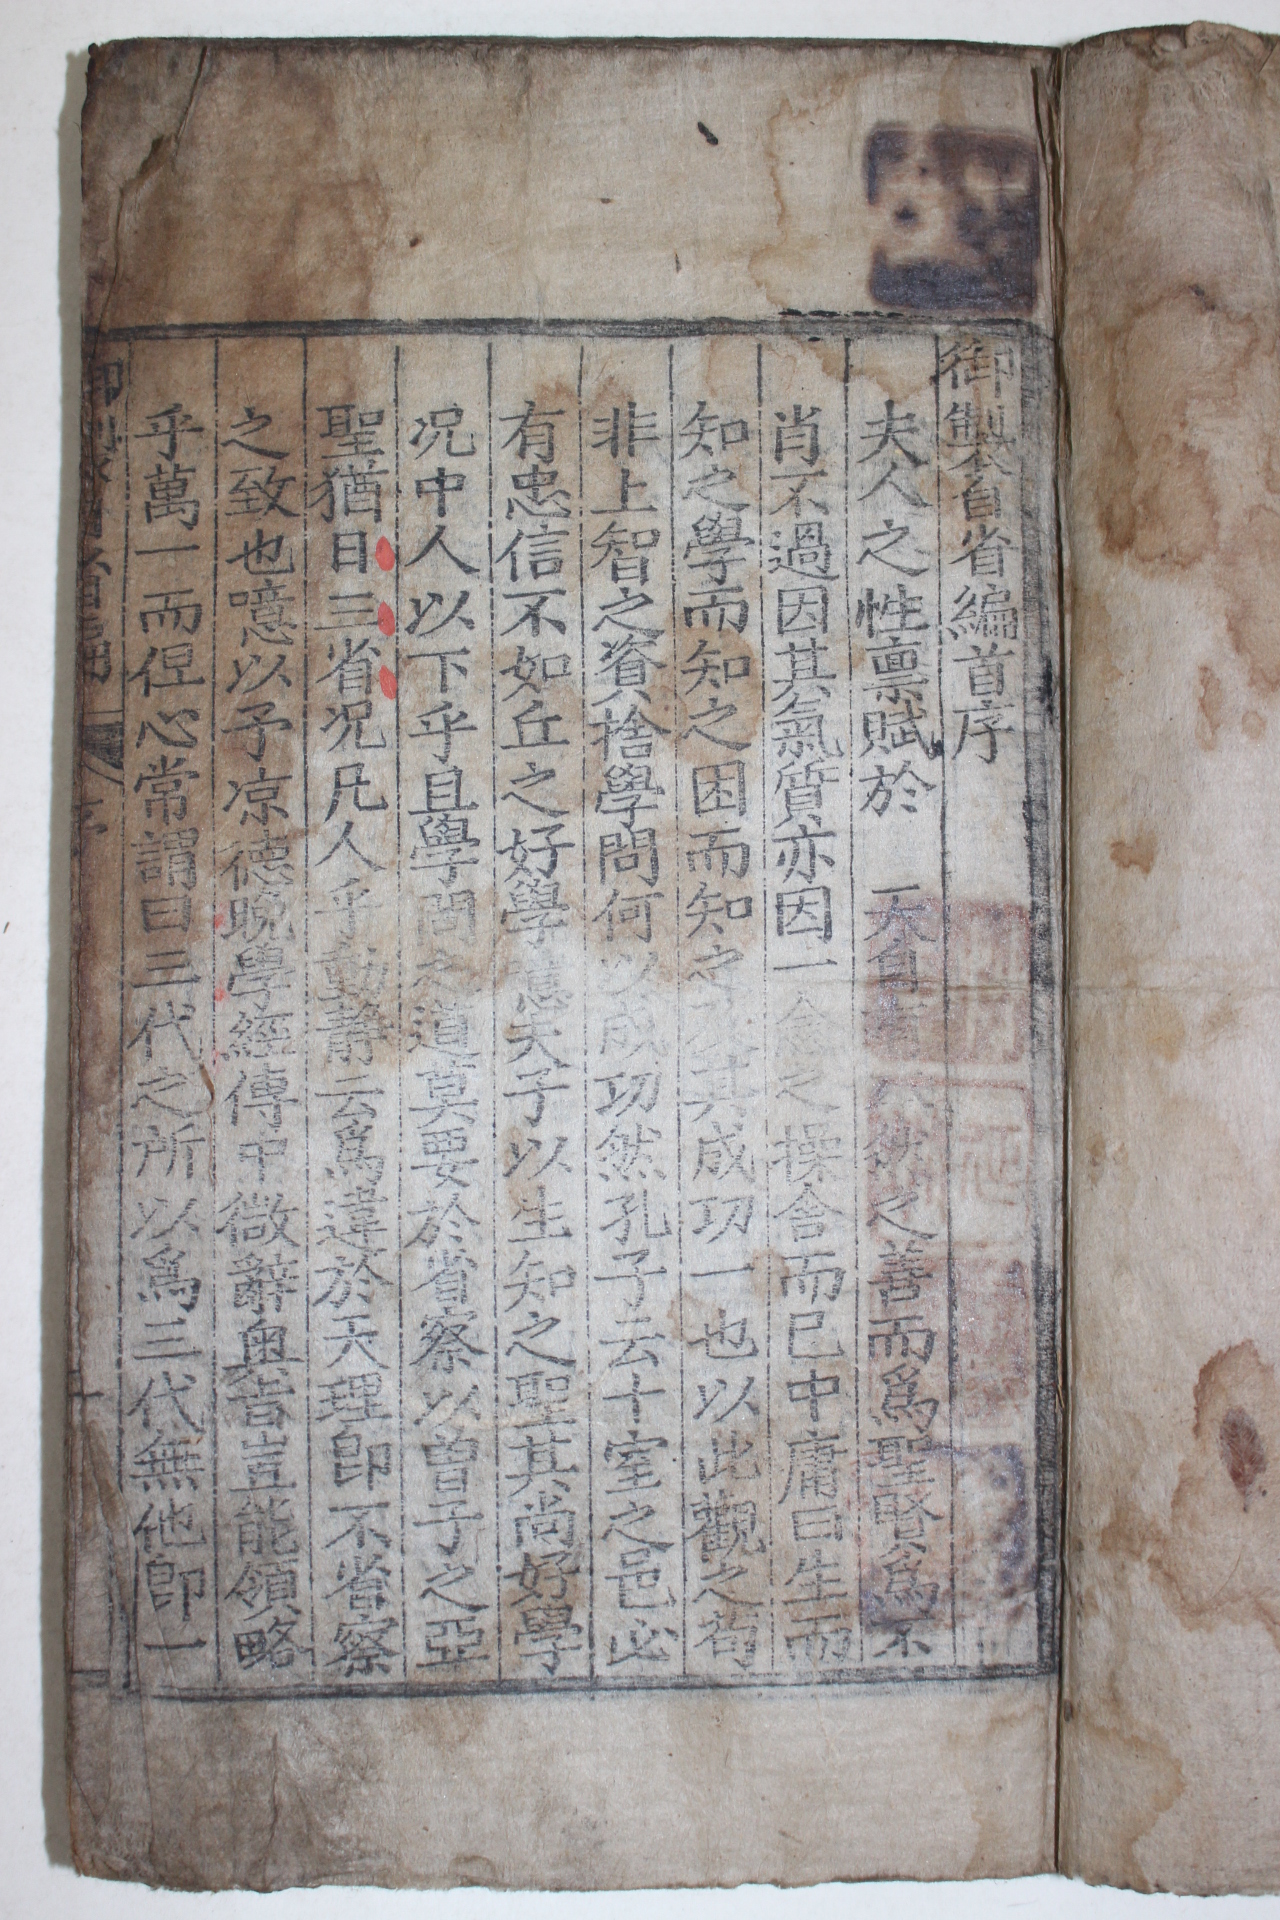 御製自省編首序
夫人之性稟賦於 天自有然之善而爲聖賢爲不
肖不過因其氣質亦因一念之操舍而已中庸曰生而
知之學而知之困而知之及其成功一也以此觀之苟
非上智之資捨學問何以成功然孔子云十室之邑必
有忠信不如丘之好學意夫子以生知之聖其尚好學
况中人以下乎且學問之道莫要於省察以曾子之亞
聖猶日三省况凡人乎動靜云爲違於天理即不省察
之致也噫以予凉德晚學經傳中微辭奥旨豈能領略
乎萬一而但心常謂曰三代之所以爲三代無他即一